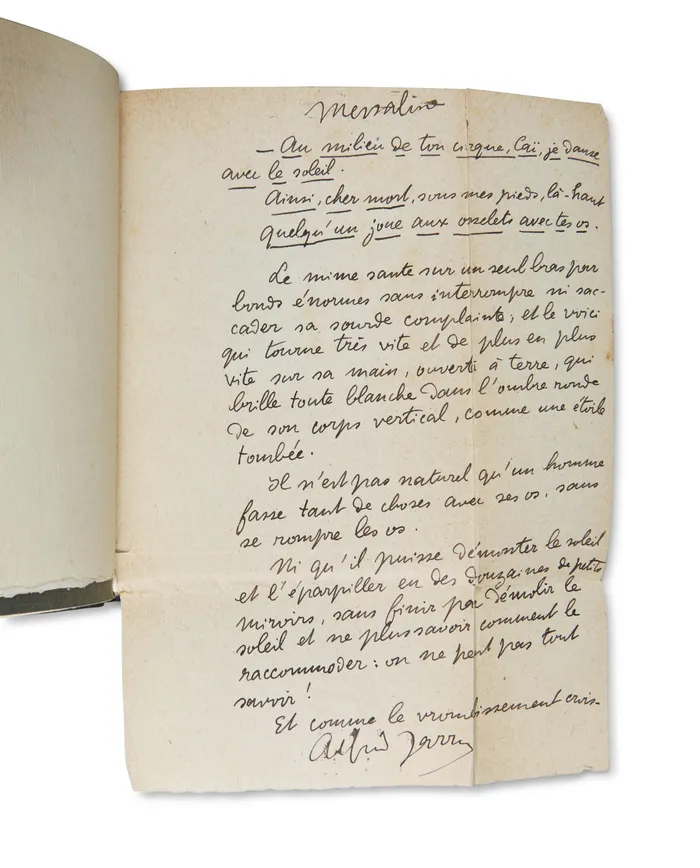 Messaline
— Au milieu de ton cirque, Caï, je danse
avec le soleil.
Ainsi, cher mort, sous mes pieds, là-haut
quelqu'un joue aux osselets avec tes os.
Le mime saute sur un seul bras par
bonds énormes sans interrompre ni sac-
cader sa sourde complainte ; et le voici
qui tourne très vite et de plus en plus
vite sur sa main, ouverte à terre, qui
brille toute blanche dans l'ombre ronde
de son corps vertical, comme une étoile
tombée.
Il n'est pas naturel qu'un homme
fasse tant de choses avec ses os, sans
se rompre les os.
Ni qu'il puisse démonter le soleil
et l'éparpiller en des douzaines de petits
miroirs, sans finir par démolir le
soleil et ne plus savoir comment le
raccommoder : on ne peut pas tout
savoir !
Et comme le vrombissement crois-
Alfred Jarry